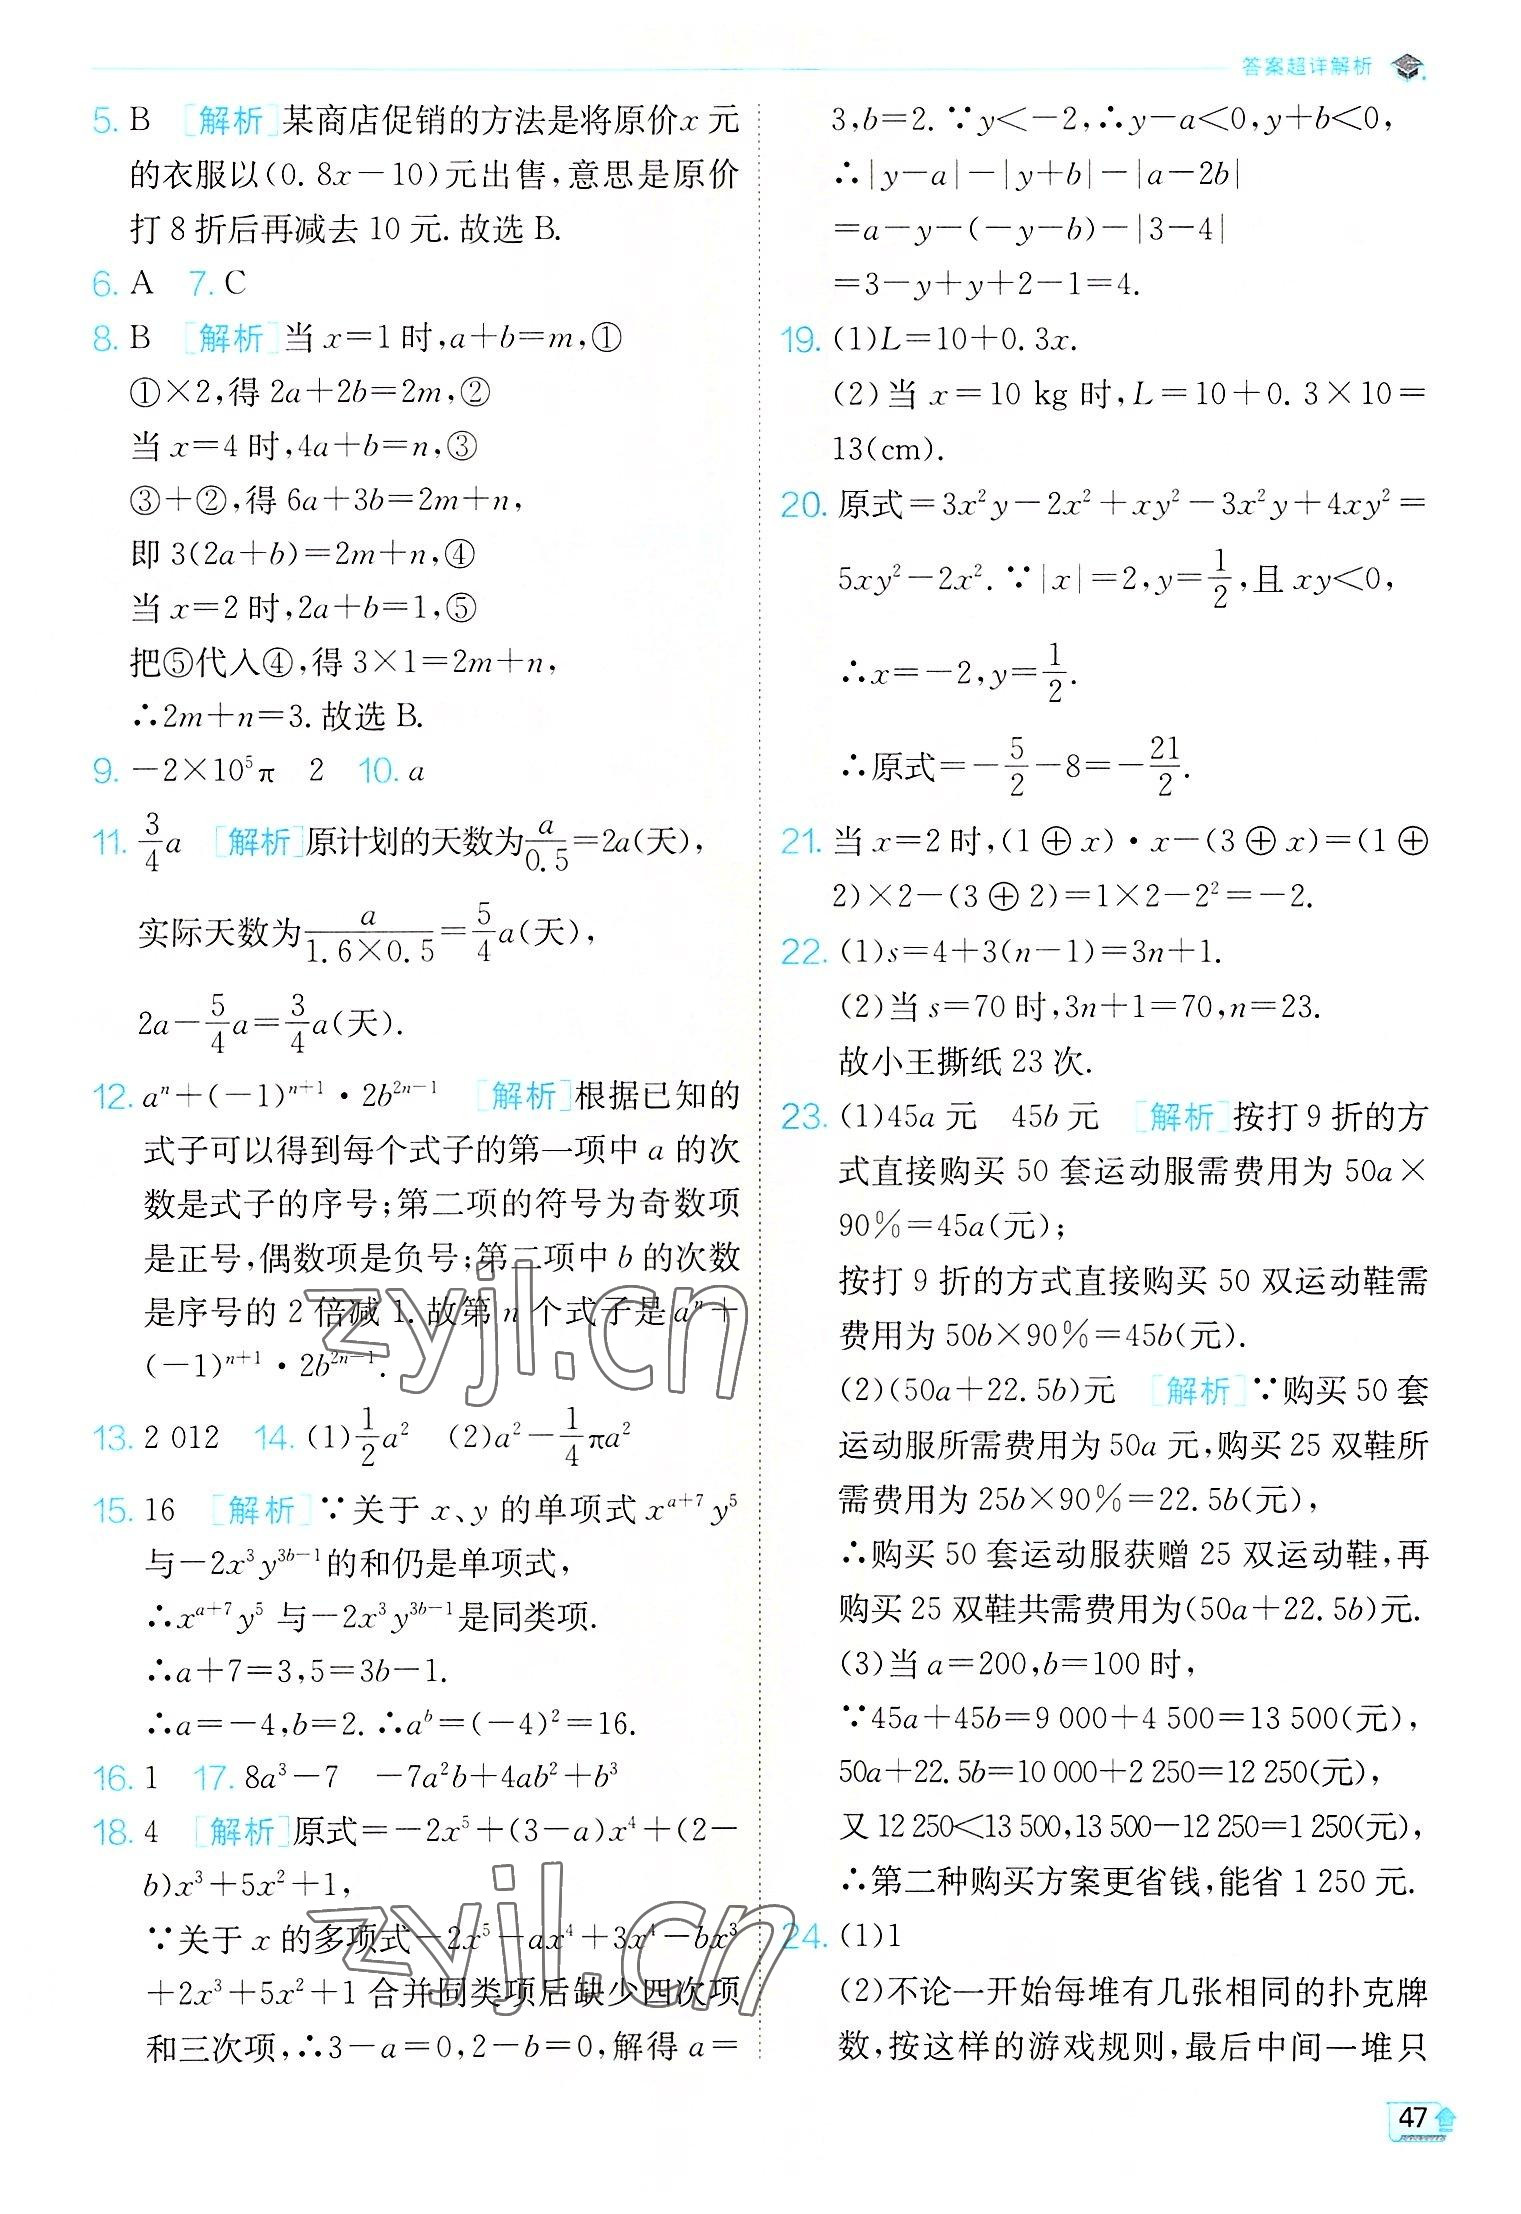 答案超详解析
5. B [解析]某商店促销的方法是将原价x元
的衣服以(0.8x-10)元出售,意思是原价
打8折后再减去10元.故选B.
6. A 7. C
8. B [解析]当x=1时,a+b=m,①
①×2,得2a+2b=2m,②
当x=4时,4a+b=n,③
③+②,得6a+3b=2m+n,
即3(2a+b)=2m+n,④
当x=2时,2a+b=1,⑤
把⑤代入④,得3×1=2m+n,
∴2m+n=3.故选B.
9. -2×10⁵π 2 10. a
11. 3/4 a [解析]原计划的天数为a/0.5=2a(天),
实际天数为a/(1.6×0.5)=5/4 a(天),
2a-5/4 a=3/4 a(天).
12. aⁿ+(-1)ⁿ⁺¹·2b²ⁿ⁻¹ [解析]根据已知的
式子可以得到每个式子的第一项中a的次
数是式子的序号;第二项的符号为奇数项
是正号,偶数项是负号;第二项中b的次数
是序号的2倍减1.故第n个式子是aⁿ+
(-1)ⁿ⁺¹·2b²ⁿ⁻¹.
13. 2 012 14. (1)1/2 a² (2)a²-1/4 πa²
15. 16 [解析]∵关于x、y的单项式xᵃ⁺⁷y⁵
与-2x³y³ᵇ⁻¹的和仍是单项式,
∴xᵃ⁺⁷y⁵与-2x³y³ᵇ⁻¹是同类项.
∴a+7=3,5=3b-1.
∴a=-4,b=2.∴aᵇ=(-4)²=16.
16. 1 17. 8a³-7 -7a²b+4ab²+b³
18. 4 [解析]原式=-2x⁵+(3-a)x⁴+(2-
b)x³+5x²+1,
∵关于x的多项式-2x⁵-ax⁴+3x⁴-bx³
+2x³+5x²+1合并同类项后缺少四次项
和三次项,∴3-a=0,2-b=0,解得a=
3,b=2.∵y<-2,∴y-a<0,y+b<0,
∴|y-a|-|y+b|-|a-2b|
=a-y-(-y-b)-|3-4|
=3-y+y+2-1=4.
19. (1)L=10+0.3x.
(2)当x=10 kg时,L=10+0.3×10=
13(cm).
20. 原式=3x²y-2x²+xy²-3x²y+4xy²=
5xy²-2x².∵|x|=2,y=1/2,且xy<0,
∴x=-2,y=1/2.
∴原式=-5/2-8=-21/2.
21. 当x=2时,(1⊕x)·x-(3⊕x)=(1⊕
2)×2-(3⊕2)=1×2-2²=-2.
22. (1)s=4+3(n-1)=3n+1.
(2)当s=70时,3n+1=70,n=23.
故小王撕纸23次.
23. (1)45a元 45b元 [解析]按打9折的方
式直接购买50套运动服需费用为50a×
90%=45a(元);
按打9折的方式直接购买50双运动鞋需
费用为50b×90%=45b(元).
(2)(50a+22.5b)元 [解析]∵购买50套
运动服所需费用为50a元,购买25双鞋所
需费用为25b×90%=22.5b(元),
∴购买50套运动服获赠25双运动鞋,再
购买25双鞋共需费用为(50a+22.5b)元.
(3)当a=200,b=100时,
∵45a+45b=9 000+4 500=13 500(元),
50a+22.5b=10 000+2 250=12 250(元),
又12 250<13 500,13 500-12 250=1 250(元),
∴第二种购买方案更省钱,能省1 250元.
24. (1)1
(2)不论一开始每堆有几张相同的扑克牌
数,按这样的游戏规则,最后中间一堆只
47
zyjl.cn
zyjl.cn